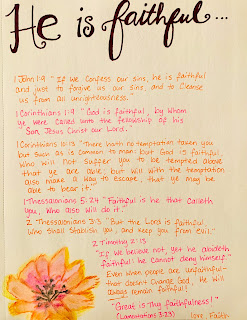 He is faithful...
1 John 1:9 "If We Confess our Sins, he is faithful
and just to forgive us our Sins, and to Cleanse
us from all unrighteousness."
1 Corinthians 1:9 "God is faithful, by Whom
ye Were Called unto the fellowship of his
Son Jesus Christ our Lord."
1 Corinthians 10:13 "There hath no temptation taken you
but such as is Common to man: but God is faithful,
Who Will not Suffer you to be tempted above
that ye are able; but Will with the temptation
also make a Way to escape, that ye may be
able to bear it."
1 Thessalonians 5:24 "Faithful is he that Calleth
You, Who also Will do it."
2 Thessalonians 3:3 "But the Lord is faithful,
Who Shall Stablish you, and keep you from evil."
2 Timothy 2:13
"If We believe not, yet he abideth
faithful: he Cannot deny himself."
Even when people are unfaithful-
that doesn't Change God, He will
always remain faithful!
"Great is Thy faithfulness!"
(Lamentations 3:23)
love, Faith